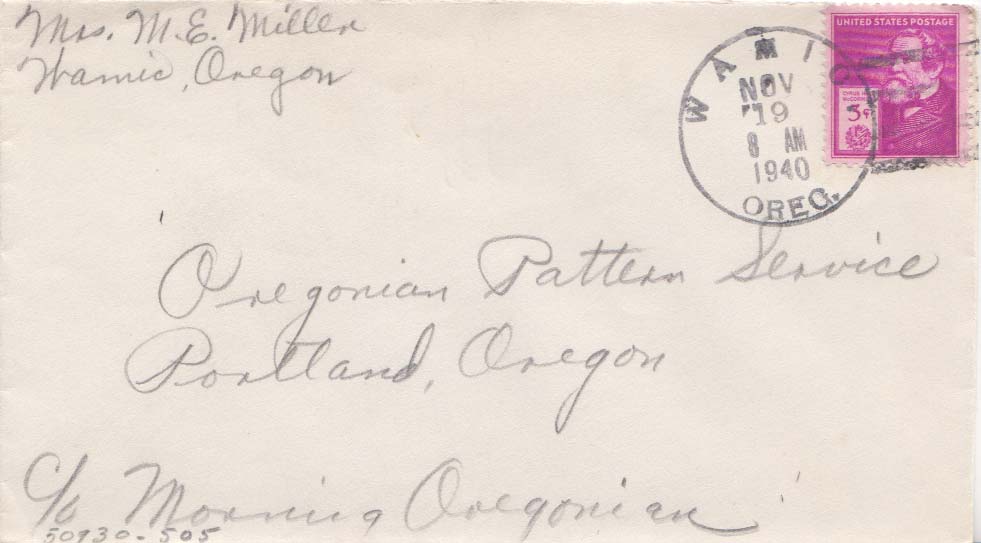 Mrs. M.E. Miller
Wamic, Oregon
WAMIC
NOV
19
8 AM
1940
OREG.
UNITED STATES POSTAGE
CYRUS H.
McCORMICK
3¢
Oregonian Pattern Service
Portland, Oregon
c/o Morning Oregonian
50930-505